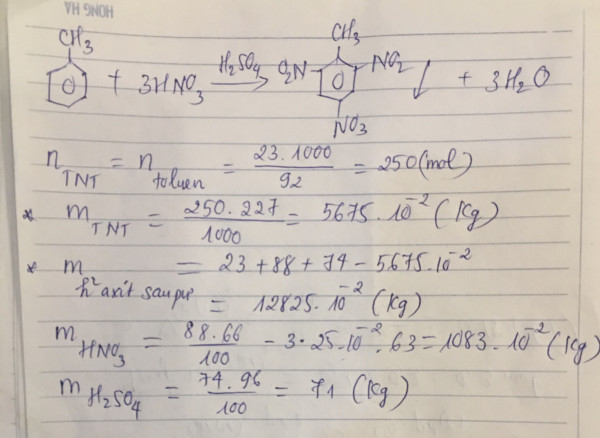 HONG HA
CH₃ CH₃
+ 3HNO₃ H₂SO₄ → O₂N NO₂ ↓ + 3H₂O
NO₃
n TNT = n toluen = 23.1000 / 92 = 250 (mol)
* m TNT = 250.227 / 1000 = 5675.10⁻² (Kg)
* m h² axit sau pư = 23 + 88 + 74 - 5675.10⁻²
= 12825.10⁻² (Kg)
m HNO₃ = 88.66 / 100 - 3.25.10⁻².63 = 1083.10⁻² (Kg)
m H₂SO₄ = 74.96 / 100 = 71 (Kg)